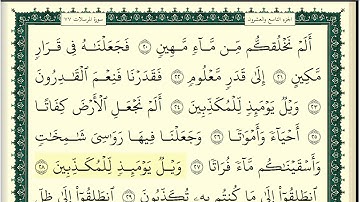 الجزء التاسع والعشرون سورة المرسلات ٧٧
أَلَمْ نَخْلُقكُّم مِّن مَّآءٍ مَّهِينٍ ٢٠ فَجَعَلْنَٰهُ فِى قَرَارٍ
مَّكِينٍ ٢١ إِلَىٰ قَدَرٍ مَّعْلُومٍ ٢٢ فَقَدَرْنَا فَنِعْمَ ٱلْقَٰدِرُونَ
٢٣ وَيْلٌ يَوْمَئِذٍ لِّلْمُكَذِّبِينَ ٢٤ أَلَمْ نَجْعَلِ ٱلْأَرْضَ كِفَاتًا
٢٥ أَحْيَآءً وَأَمْوَٰتًا ٢٦ وَجَعَلْنَا فِيهَا رَوَٰسِىَ شَٰمِخَٰتٍ
وَأَسْقَيْنَٰكُم مَّآءً فُرَاتًا ٢٧ وَيْلٌ يَوْمَئِذٍ لِّلْمُكَذِّبِينَ ٢٨
ٱنطَلِقُوٓا۟ إِلَىٰ مَا كُنتُم بِهِۦ تُكَذِّبُونَ ٢٩ ٱنطَلِقُوٓا۟ إِلَىٰ ظِلٍّ